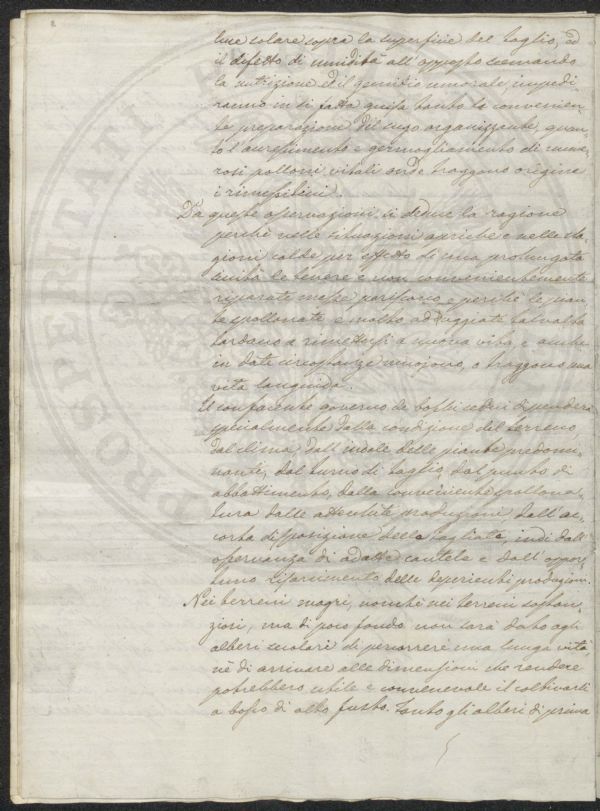 luce solare sopra la superficie del taglio, ed
il difetto di umidità all'opposto scemando
la nutrizione ed il gemitio umorale, impedi-
ranno in sì fatta guisa tanto la convenien-
te preparazione del sugo organizzante, quan-
to l' e germogliamento di nume-
rosi polloni vitali onde traggono origine
i rimessiticci.
Da queste osservazioni si deduce la ragione
perchè nelle situazioni apriche e nelle sta-
gioni calde per effetto di una prolungata
siccità le tenere e non convenientemente
riparate messe periscano, e perchè le pian-
te spollonate e molto aduggiate talvolta
tardano a rimettersi a nuova vita, e anche
in date circostanze muojono, o traggono una
vita languida.
Il conferente governo de boschi cedui dipenderà
specialmente dalla condizione del terreno,
dal clima, dall'indole delle piante predomi-
nanti, dal turno di taglio, dal punto di
abbattimento, dalla conveniente spollona-
tura dalle produzioni dall'ac-
corta disposizione delle tagliate, indi dall'
osservanza di adatte cautele e dall'oppor-
tuno risarcimento delle deperienti produzioni.
Nei terreni magri, nonchè nei terreni sostan-
ziosi, ma di poco fondo non sarà dato agli
alberi secolari di percorrere una lunga vita
nè di arrivare alle dimensioni che rendere
potrebbero utile e convenevole il coltivarli
a bosco di alto fusto. Tanto gli alberi di prima
PROSPERITATI